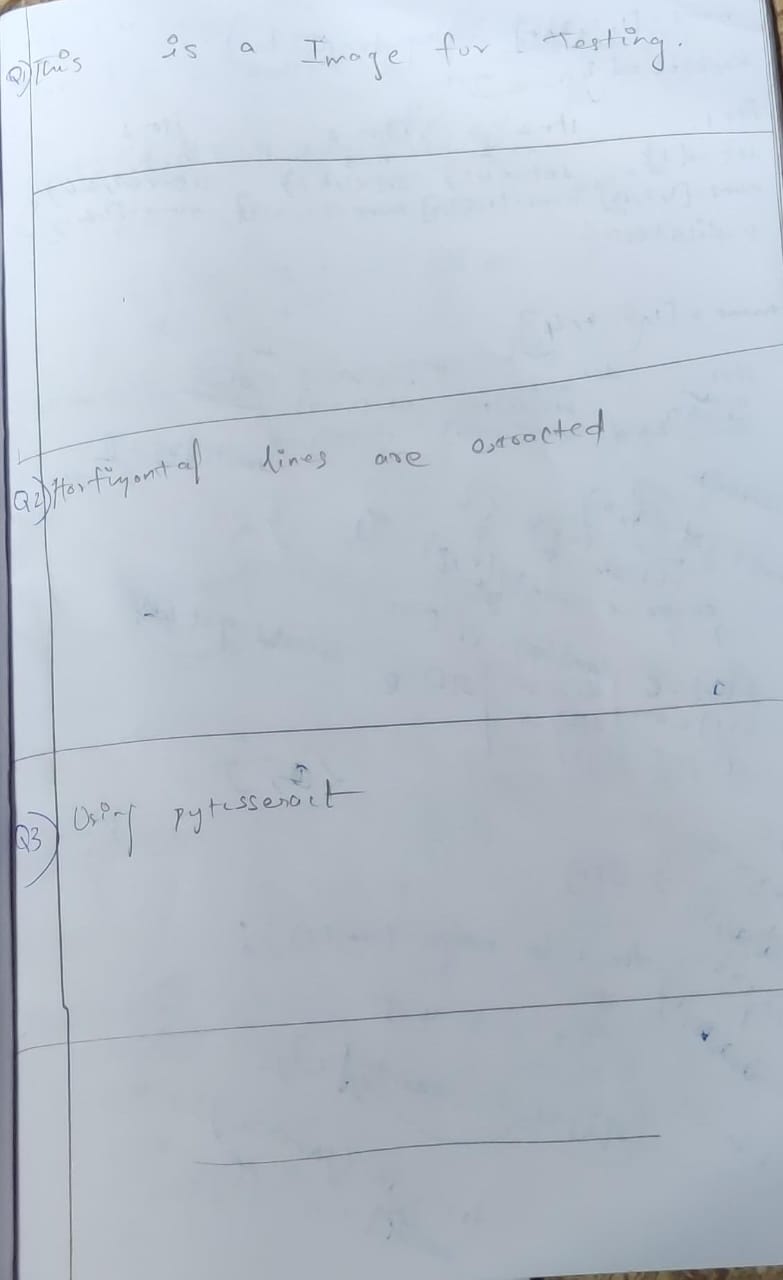 Q1) This is a Image for Testing.
Q2) Horfizontal lines are axtracted
Q3) Using pytesseract